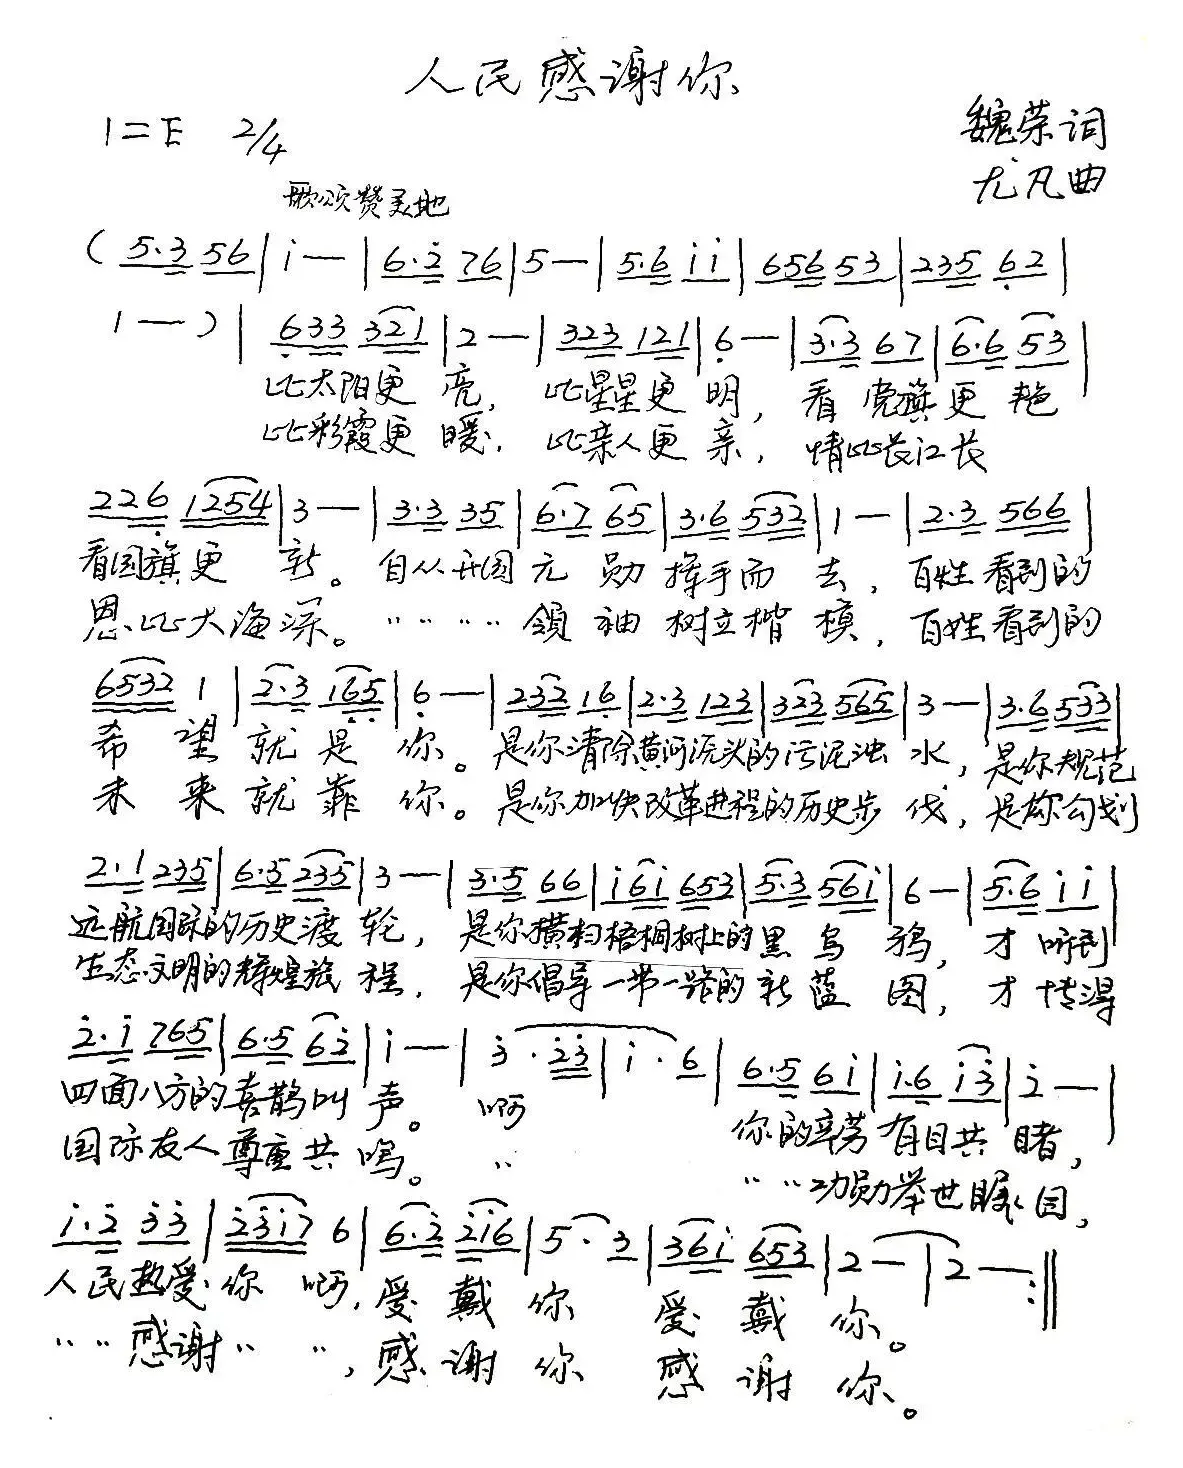 人民感谢你
1=E 2/4
魏荣词
尤凡曲
歌颂赞美地
( 5·3 56 | i — | 6·2̇ 76 | 5 — | 5·6 i i | 656 53 | 235 6̣2 |
1 — ) | 6̣33 321 | 2 — | 323 121 | 6̣ — | 3·3 67 | 6·6 53 |
比太阳更 亮， 比星星更 明， 看 党旗更 艳
比彩霞更 暖， 比亲人更 亲， 情比长江长
226̣ 1254 | 3 — | 3·3 35 | 6·7 65 | 3·6 532 | 1 — | 2·3 566 |
看国旗更 新。 自从开国元 勋 挥手而 去， 百姓看到的
恩比大海深。 〃 〃 〃 〃 领 袖 树立楷 模， 百姓看到的
6532 1 | 2·3 16̣5̣ | 6̣ — | 232 16̣ | 2·3 123 | 323 565 | 3 — | 3·6 533 |
希 望 就 是 你。 是你清除黄河源头的污泥浊 水， 是你规范
未 来 就 靠 你。 是你加快改革进程的历史步 伐， 是你勾划
2·1 235 | 6·5 235 | 3 — | 3·5 66 | i 6 i 653 | 5·3 56i | 6 — | 5·6 i i |
远航国际的历史渡 轮， 是你横扫梧桐树上的黑 乌 鸦， 才 听到
生态文明的辉煌旅 程， 是你倡导一带一路的新 蓝 图， 才 博得
2̇·i 765 | 6·5 62̇ | i — | 3̇·2̇3̇ | i·6 | 6·5 6i | i·6 i3̇ | 2̇ — |
四面八方的喜鹊叫 声。 啊 你的辛劳 有目共 睹，
国际友人尊重共 鸣。 〃 〃 〃功勋举世瞩 目，
i·2̇ 3̇3̇ | 2̇3̇i7 6 | 6·2̇ 2̇i6 | 5·3 | 36i 653 | 2 — | 2 — :‖
人民热爱 你 啊， 爱 戴 你 爱 戴 你。
〃 〃 感谢 〃 〃， 感 谢 你 感 谢 你。